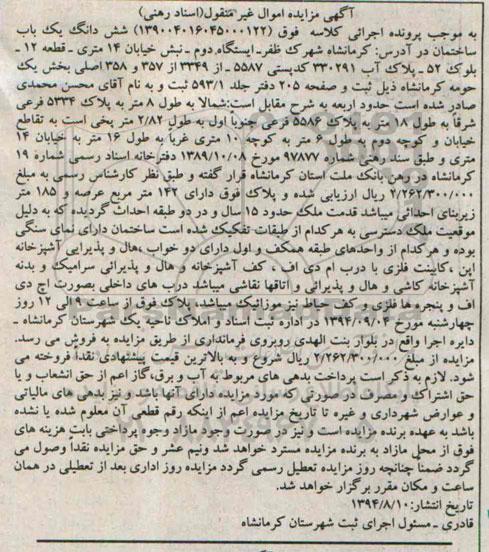 آگهی مزایده اموال غیر منقول(اسناد رهنی)
به موجب پرونده اجرائی کلاسه فوق (۱۳۹۰۰۴۰۱۶۰۴۵۰۰۰۱۲۲) شش دانگ یک باب
ساختمان در آدرس: کرمانشاه شهرک ظفر- ایستگاه دوم - نبش خیابان ۱۴ متری - قطعه ۱۲ -
بلوک ۵۲ - پلاک آب ۳۳۰۲۹۱ کدپستی ۵۵۸۷ - از ۳۳۴۹ از ۳۵۷ و ۳۵۸ اصلی بخش یک
حومه کرمانشاه ذیل ثبت و صفحه ۲۰۵ دفتر جلد ۵۹۳/۱ ثبت و به نام آقای محسن محمدی
صادر شده است حدود اربعه به شرح مقابل است:شمالا به طول ۸ متر به پلاک ۵۳۳۴ فرعی
شرقا به طول ۱۸ متر به پلاک ۵۵۸۶ فرعی جنوبا اول به طول ۲/۸۲ متر پخی است به تقاطع
خیابان و کوچه دوم به طول ۶ متر به کوچه ۱۰ متری غربا به طول ۱۶ متر به خیابان ۱۴
متری و طبق سند رهنی شماره ۹۷۸۷۷ مورخ ۱۳۸۹/۱۰/۰۸ دفترخانه اسناد رسمی شماره ۱۹
کرمانشاه در رهن بانک ملت استان کرمانشاه قرار گفته و طبق نظر کارشناس رسمی به مبلغ
۲/۲۶۲/۳۰۰/۰۰۰ ریال ارزیابی شده و پلاک فوق دارای ۱۴۲ متر مربع عرصه و ۱۸۵ متر
زیربنای احداثی میباشد قدمت ملک حدود ۱۵ سال و در دو طبقه احداث گردیده که به دلیل
موقعیت ملک دسترسی به هر کدام از طبقات تفکیک شده است ساختمان دارای نمای سنگی
بوده و هر کدام از واحدهای طبقه همکف و اول دارای دو خواب ،هال و پذیرایی آشپزخانه
اپن ،کابینت فلزی با درب ام دی اف ، کف آشپزخانه و هال و پذیرائی سرامیک و بدنه
آشپزخانه کاشی و هال و پذیرائی و اتاقها نقاشی میباشد درب های داخلی بصورت اچ دی
اف و پنجره ها فلزی و کف حیاط نیز موزائیک میباشد، پلاک فوق از ساعت ۹ الی ۱۲ روز
چهارشنبه مورخ ۱۳۹۴/۰۹/۰۴ در اداره ثبت اسناد و املاک ناحیه یک شهرستان کرمانشاه -
دایره اجرا واقع در بلوار بنت الهدی روبروی فرمانداری از طریق مزایده به فروش می رسد.
مزایده از مبلغ ۲/۲۶۲/۳۰۰/۰۰۰ ریال شروع و به بالاترین قیمت پیشنهادی نقدا فروخته می
شود. لازم به ذکر است پرداخت بدهی های مربوط به آب و برق،گاز اعم از حق انشعاب و یا
حق اشتراک و مصرف در صورتی که مورد مزایده دارای آنها باشد و نیز بدهی های مالیاتی
و عوارض شهرداری و غیره تا تاریخ مزایده اعم از اینکه رقم قطعی آن معلوم شده یا نشده
باشد به عهده برنده مزایده است و نیز در صورت وجود مازاد وجوه پرداختی بابت هزینه های
فوق از محل مازاد به برنده مزایده مسترد خواهد شد ونیم عشر و حق مزایده نقدا وصول می
گردد ضمنا چنانچه روز مزایده تعطیل رسمی گردد مزایده روز اداری بعد از تعطیلی در همان
ساعت و مکان مقرر برگزار خواهد شد.
تاریخ انتشار:۱۳۹۴/۸/۱۰
قادری - مسئول اجرای ثبت شهرستان کرمانشاه